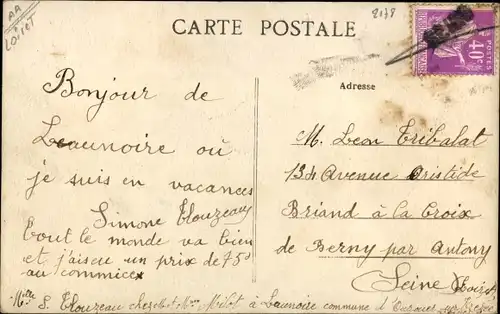 AA
LOIRET
CARTE POSTALE
2178
POSTES
40c
Adresse
Bonjour de
Launoire où
je suis en vacances
Simone Elouzeau
tout le monde va bien
et j'ai eu un prix de 75d
au commice
M. Leon Tribalat
134 Avenue Aristide
Briand à la Croix
de Berny par Antony
(Seine)
Mlle S. Elouzeau chez Mr et Mme à Launoire commune d'Ouzouer sur